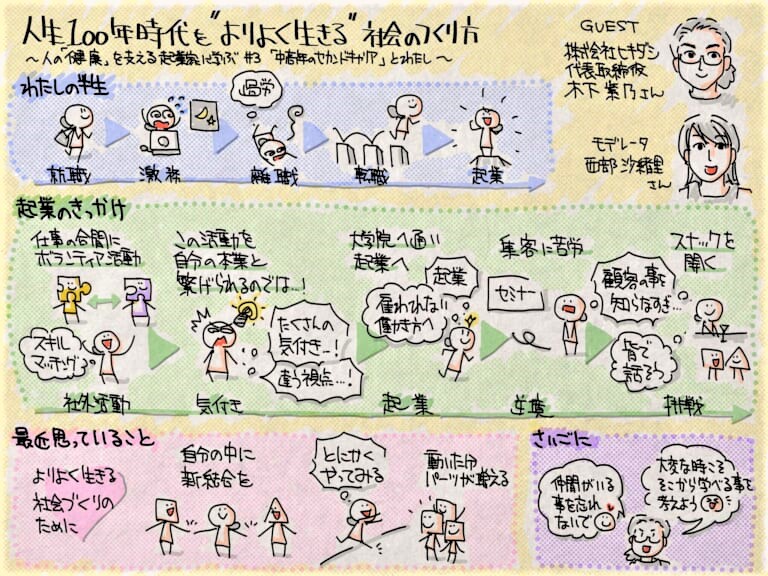 人生100年時代を"よりよく生きる"社会のつくり方
～人の「健康」を支える起業家に学ぶ #3「中高年のセカンドキャリア」とわたし～
GUEST
株式会社ヒキダシ
代表取締役
木下紫乃さん
モデレータ
西部沙緒里
さん
わたしの半生
過労
就職
激務
離職
転職
起業
起業のきっかけ
仕事の合間に
ボランティア活動
スキル
マッチング
社外活動
この活動を
自分の本業と
繋げられるのでは…!
たくさんの
気付き…!
違う視点…!
気付き
大学院へ通い
起業へ
起業
雇われない
働き方へ
起業
集客に苦労
セミナー
逆境
スナックを
開く
顧客の事を
知らなすぎ…
皆で
話そう
挑戦
最近思っていること
よりよく生きる
社会づくりの
ために
自分の中に
新結合を
とにかく
やってみる
動いた分
パーツが増える
さいごに
仲間がいる
事を忘れ
ないで
大変な時こそ
そこから学べる事を
考えよう